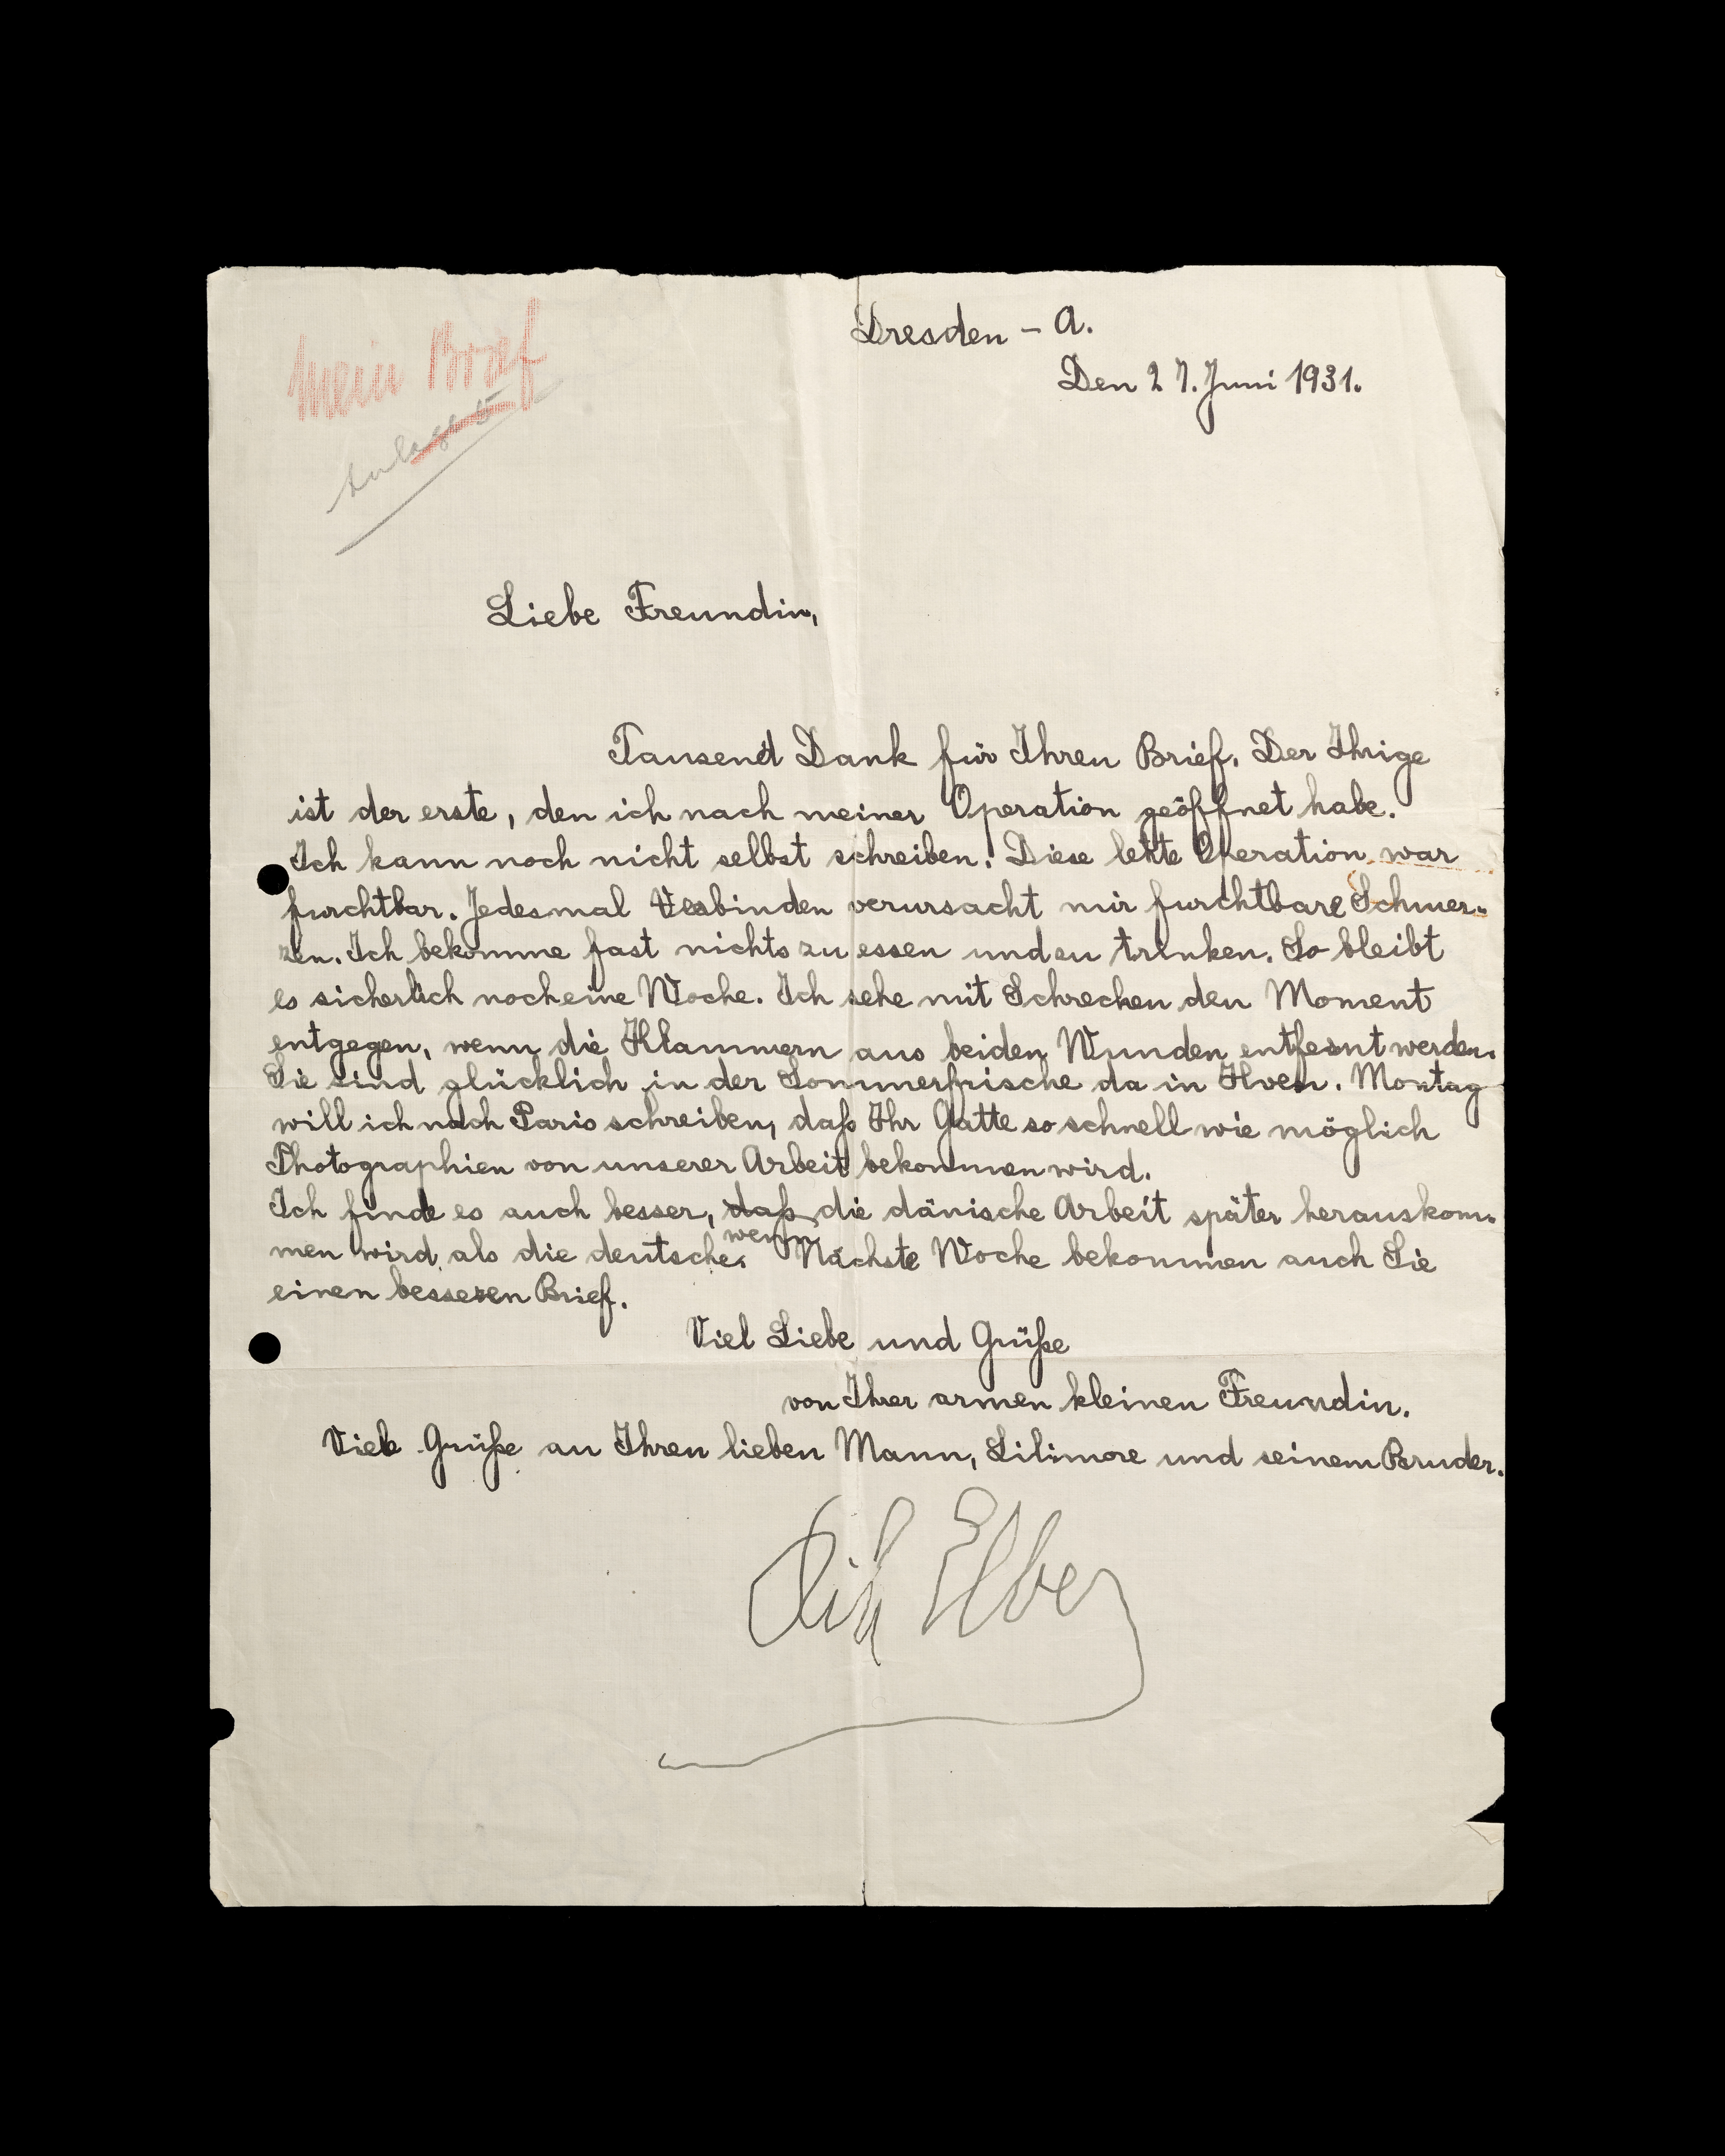 Dresden – A.
Den 27. Juni 1931.
Mein Brief
Liebe Freundin,
Tausend Dank für Ihren Brief. Der Ihrige
ist der erste, den ich nach meiner Operation geöffnet habe.
Ich kann noch nicht selbst schreiben. Diese letzte Operation war
furchtbar. Jedesmal Verbinden verursacht mir furchtbare Schmer-
zen. Ich bekomme fast nichts zu essen und zu trinken. So bleibt
es sicherlich noch eine Woche. Ich sehe mit Schrecken den Moment
entgegen, wenn die Klammern aus beiden Wunden entfernt werden.
Sie sind glücklich in der Sommerfrische da in Hven. Montag
will ich nach Paris schreiben, daß Ihr Gatte so schnell wie möglich
Photographien von unserer Arbeit bekommen wird.
Ich finde es auch besser, daß die dänische Arbeit später herauskom-
wenn
men wird als die deutsche. Nächste Woche bekommen auch Sie
einen besseren Brief.
Viel Liebe und Grüße
von Ihrer armen kleinen Freundin.
Viele Grüße an Ihren lieben Mann, Lilimore und seinem Bruder.
Lili Elbe